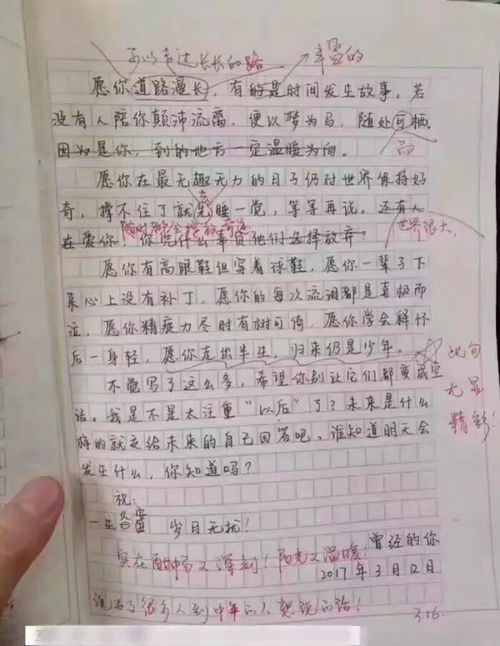 可以奔过长长的路 丰富的
愿你道路漫长，有的是时间发生故事，若
没有人陪你颠沛流离，便以梦为马，随处可栖。
因为是你，到的地方一定温暖为向。 而
愿你在最无趣无力的日子仍对世界保持好
奇，撑不住了就先睡一觉，等等再说，还有人
在爱你，你凭什么事替他们选择放弃？ 世界很大，
愿你有高跟鞋但穿着球鞋，愿你一辈子下
来心上没有补丁，愿你的每次流泪都是喜极而
泣，愿你精疲力尽时有树可倚，愿你学会释怀
后一身轻，愿你走出半生，归来仍是少年。 此句
不觉写了这么多，希望你别让它们都变成空 尤显
话。我是不是太注重“以后”了？未来是什么 精彩！
样的就交给未来的自己回答吧，谁知道明天会
发生什么，你知道吗？
祝：
一生 岁月无扰！
实在酣畅又深刻！阳光又温暖！ 曾经的你
2017年3月12日
说出了很多人到中年的人想说的话！ 3.16